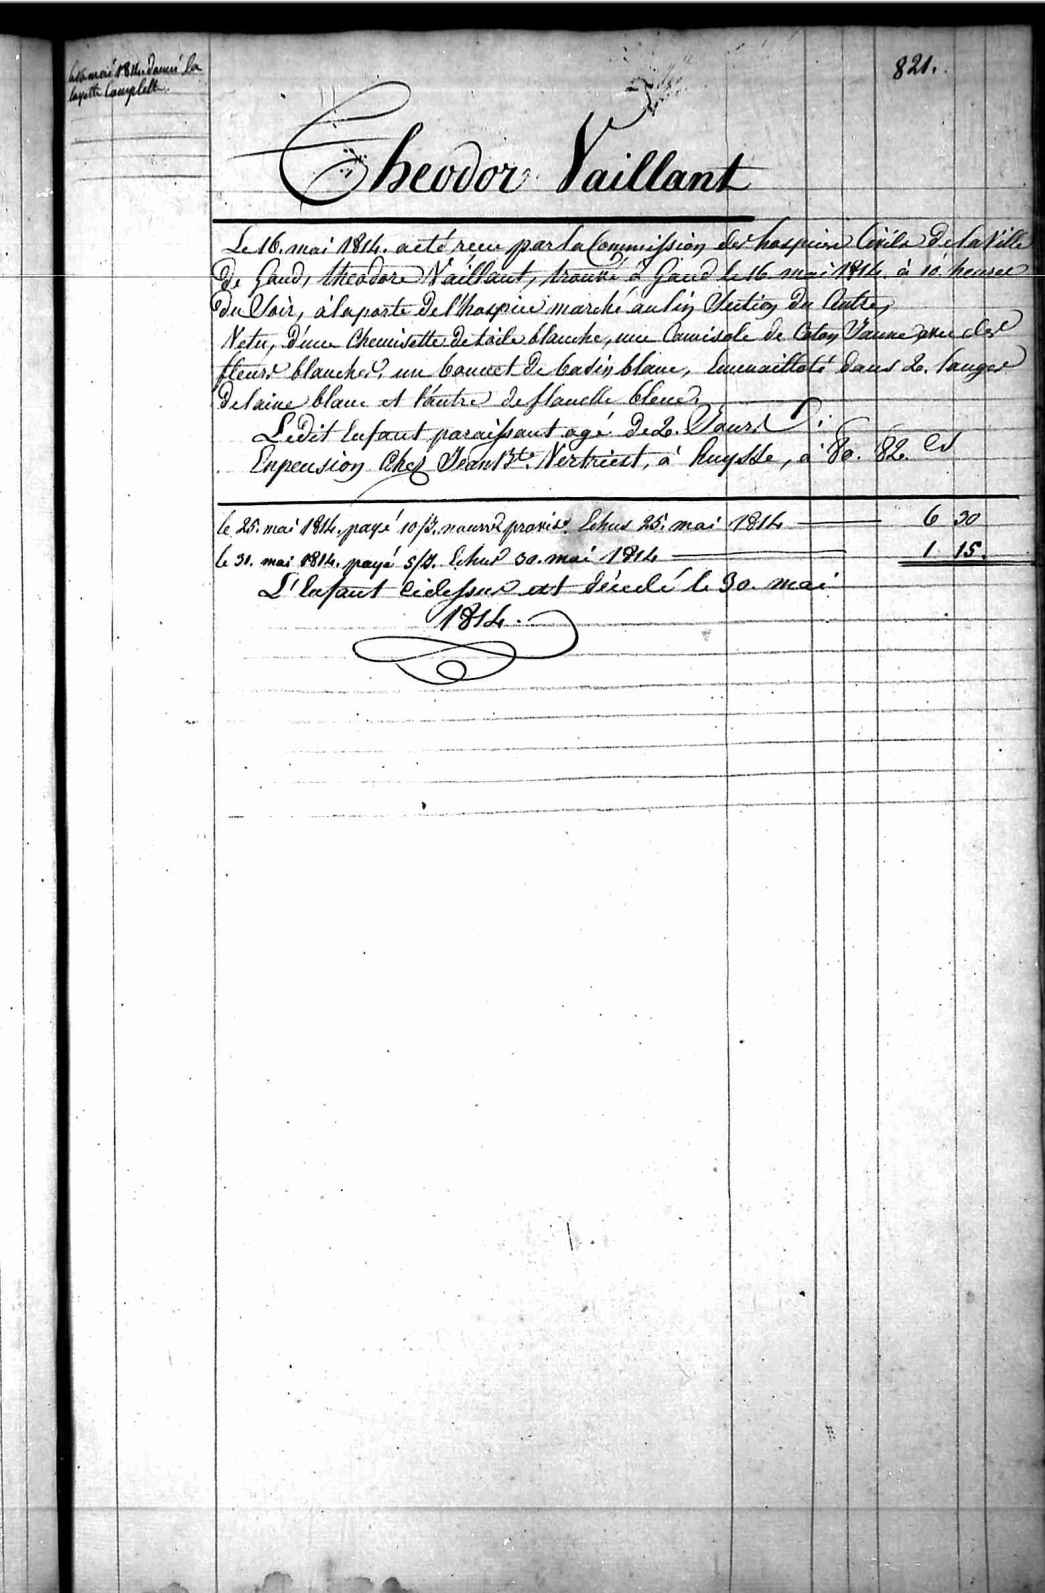 821.
le 16 mai 1814 donné la
layette Complette.
Theodor Vaillant
Le 16. mai 1814. a été recu par la Commission des hospices Civils de la Ville
de Gand, theodore Vaillant, trouvé à Gand le 16 mai 1814. à 10. heures
du Soir, à la porte de l'hospice marché au lin Section du Centre,
Vetu, d'une Chemisette de toile blanche, une Camisole de Coton Jaune avec des
fleurs blanches, un bonnet de basin blanc, Emmailloté dans 2. langes
de laine blanc et l'autre de flanelle bleue
Ledit Enfant paraissant agé de 2. Jours
En pension Chez Jean Bte. Vertriest, à Huysse, à 80. 82. Cs
le 25. mai 1814. payé 10/J. nourre. provisre. Echus 25. mai 1814 6 30
le 31. mai 1814. payé 5/J. Echus 30. mai 1814 1 15.
L'Enfant ci dessus est décedé le 30. mai
1814.